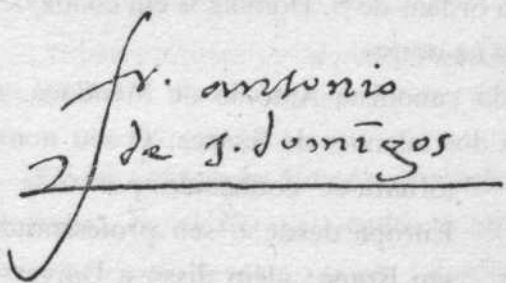 fr. antonio
de s. domīgos